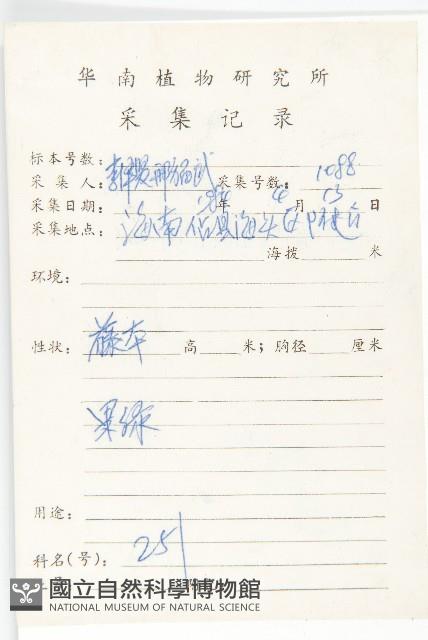 华南植物研究所
采集记录
标本号数:
采集人: 邢福武 采集号数: 1088
采集日期: 年 4 月 13 日
采集地点: 海南 县海头
海拨 米
环境:
性状: 藤本 高 米; 胸径 厘米
果绿
用途:
科名(号): 251
國立自然科學博物館
NATIONAL MUSEUM OF NATURAL SCIENCE